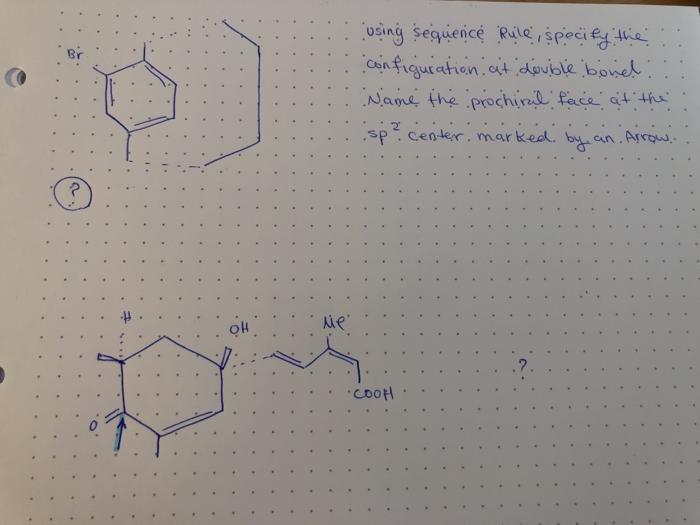 using sequence Rule, specify the
configuration at double bond.
Name the prochiral face at the
sp² center marked by an Arrow.
Br
?
H
OH
Me
COOH
O
?